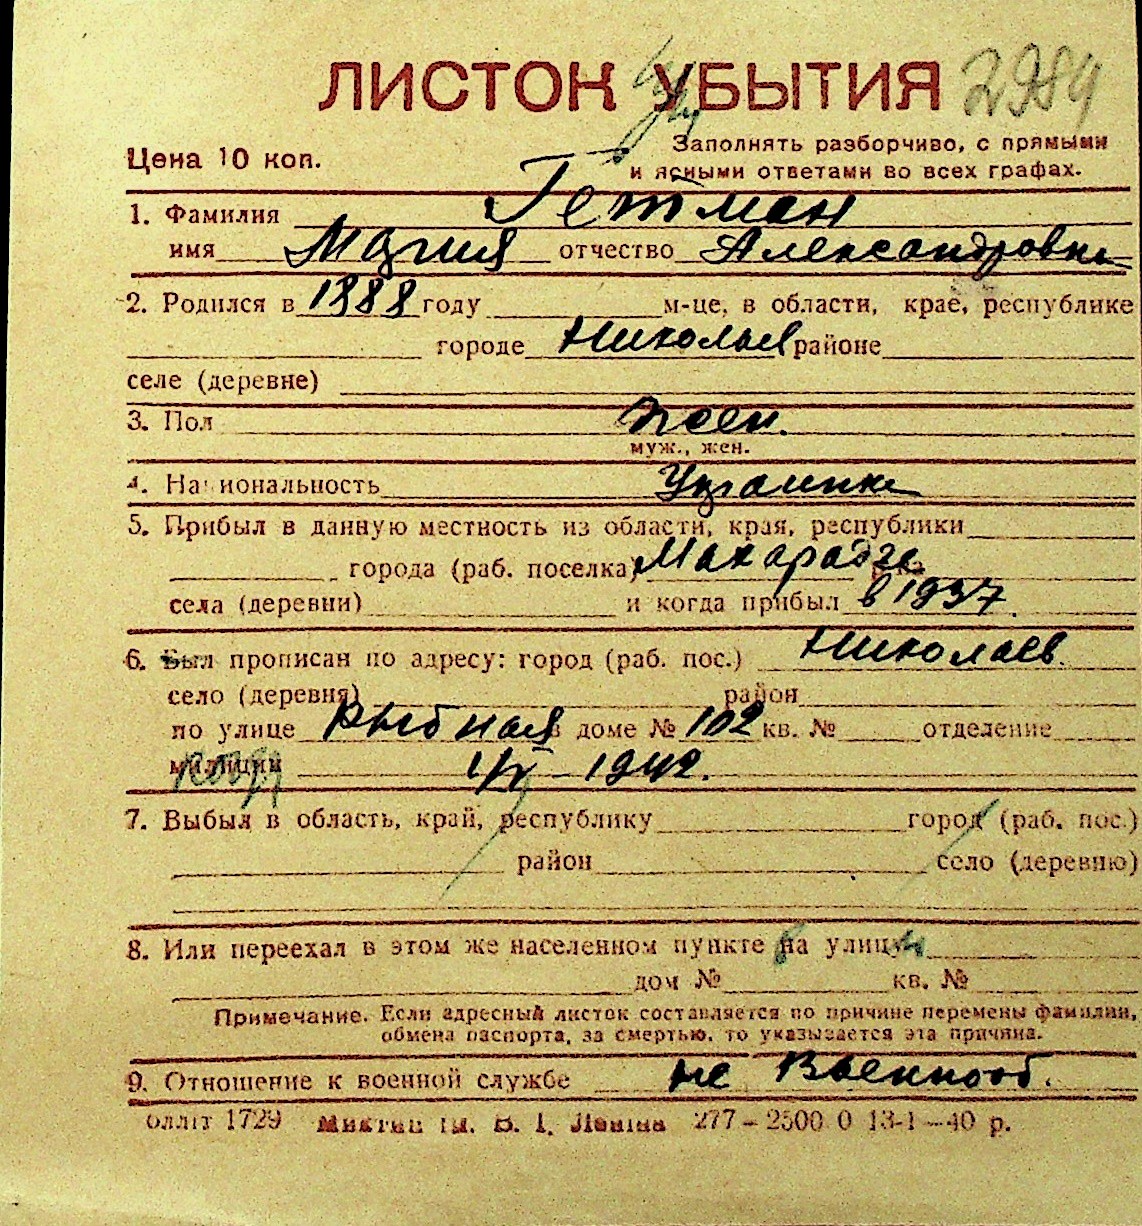 ЛИСТОК УБЫТИЯ 2984
Цена 10 коп.
Заполнять разборчиво, с прямыми
и ясными ответами во всех графах.
1. Фамилия Гетман
имя Мария отчество Александровна
2. Родился в 1888 году м-це, в области, крае, республике
городе Николаев районе
селе (деревне)
3. Пол жен.
муж., жен.
4. Национальность Украинка
5. Прибыл в данную местность из области, края, республики
города (раб. поселка) Махарадзе
села (деревни) и когда прибыл в 1937
6. Был прописан по адресу: город (раб. пос.) Николаев.
село (деревня) район
по улице Рыбная в доме № 102 кв. № отделение
милиции 1942.
7. Выбыл в область, край, республику город (раб. пос.)
район село (деревню)
8. Или переехал в этом же населенном пункте на улицу
дом № кв. №
Примечание. Если адресный листок составляется по причине перемены фамилии,
обмена паспорта, за смертью, то указывается эта причина.
9. Отношение к военной службе не Военнооб.
1729 В. І. Леніна 277 – 2500 0 13-1 – 40 р.